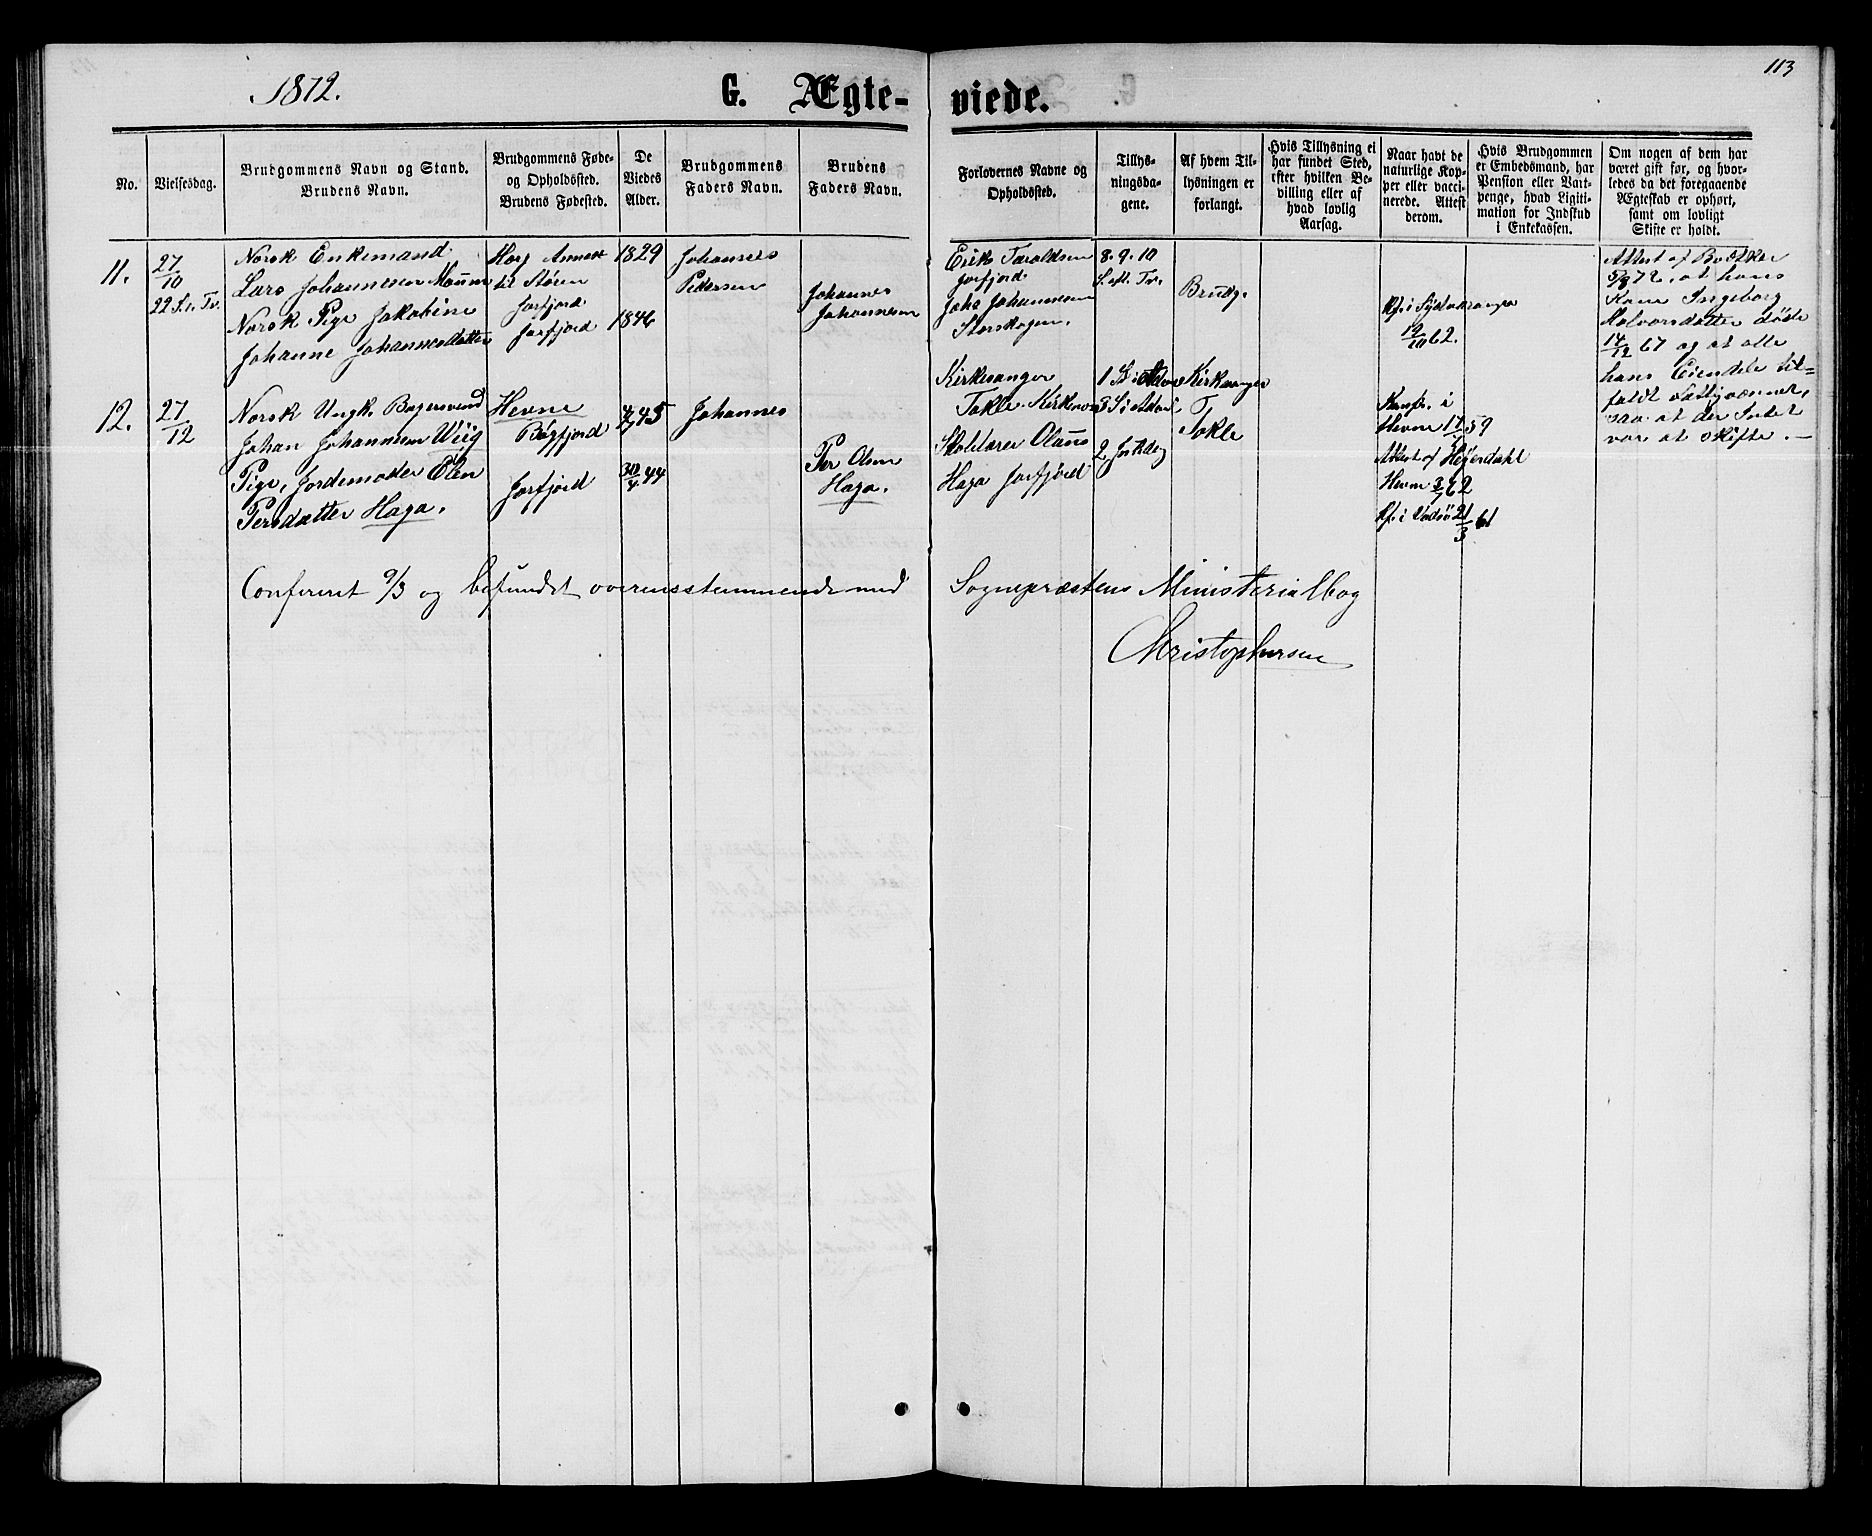 1872.
G. Ægte-
viede.
113
No.
Vielsesdag.
Brudgommens Navn og Stand.
Brudens Navn.
Brudgommens Føde-
og Opholdssted.
Brudens Fødested.
De
Viedes
Alder.
Brudgommens
Faders Navn.
Brudens
Faders Navn.
Forlovernes Navne og
Opholdssted.
Tillys-
ningsda-
gene.
Af hvem Til-
lysningen er
forlangt.
Hvis Tillysning ei
har fundet Sted,
efter hvilken Be-
villing eller af
hvad lovlig
Aarsag.
Naar havt de
naturlige Kop-
per eller vacci-
nerede. Attest
derom.
Hvis Brudgommen
er Embedsmand, har
Pension eller Vart-
penge, hvad Ligiti-
mation for Indskud
i Enkekassen.
Om nogen af dem har
været gift før, og hvor-
ledes da det foregaaende
Ægteskab er ophørt,
samt om lovligt
Skifte er holdt.
11.
27/10
22 S. e. Tr.
Norsk Enkemand
Lars Johannesen Maum
Norsk Pige Jakobine
Johanne Johannesdatter
Horg Annex
til Støren
Jarfjord
Jarfjord
1829
1846
Johannes
Pedersen
Johannes
Johannesen
Erik Taraldsen
Jarfjord
Johs Johannesen
Storskogen.
8. 9. 10
S. eft. Tr.
Brudg.
Kf. i Sydvaranger
12/10 62.
Attest af Bødtker
5/8 72, at hans
Kone Ingeborg
Halvorsdatter døde
14/12 67 og at alle
hans Eiendele til-
faldt Fattigvæsenet,
saa at der Intet
var at skifte. —
12.
27/12
Norsk Ungk. Bagersvend
Johan Johannesen Wiig
Pige, Jordemoder Elen
Persdatter Haga.
Hevne
Bøgfjord
Jarfjord
45
30/4 44
Johannes
Per Olsen
Haga.
Kirkesanger
Takle Kirkenes
Skolelærer Olaus
Haga Jarfjord
1 S i Adv
3 S i Adv
2 Juledag
Kirkesanger
Takle
Konf. i
Hevne 59
Attest af Heyerdahl
Hevne 3/7 62
Kf. i Vadsö 21/3 61
Confereret 9/3 og befundet overensstemmende med
Sognepræstens Ministerialbog
Christophersen